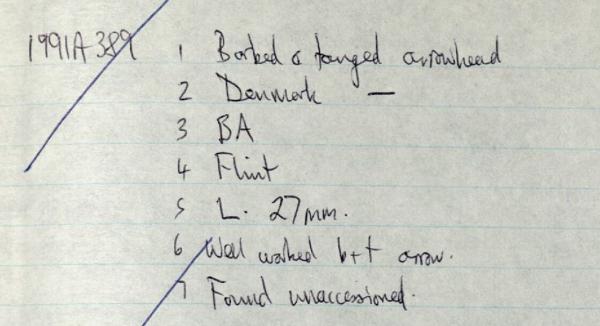 1991A389 1 Barbed & tanged arrowhead
2 Denmark —
3 BA
4 Flint
5 L. 27mm.
6 Well worked b+t arrow.
7 Found unaccessioned.